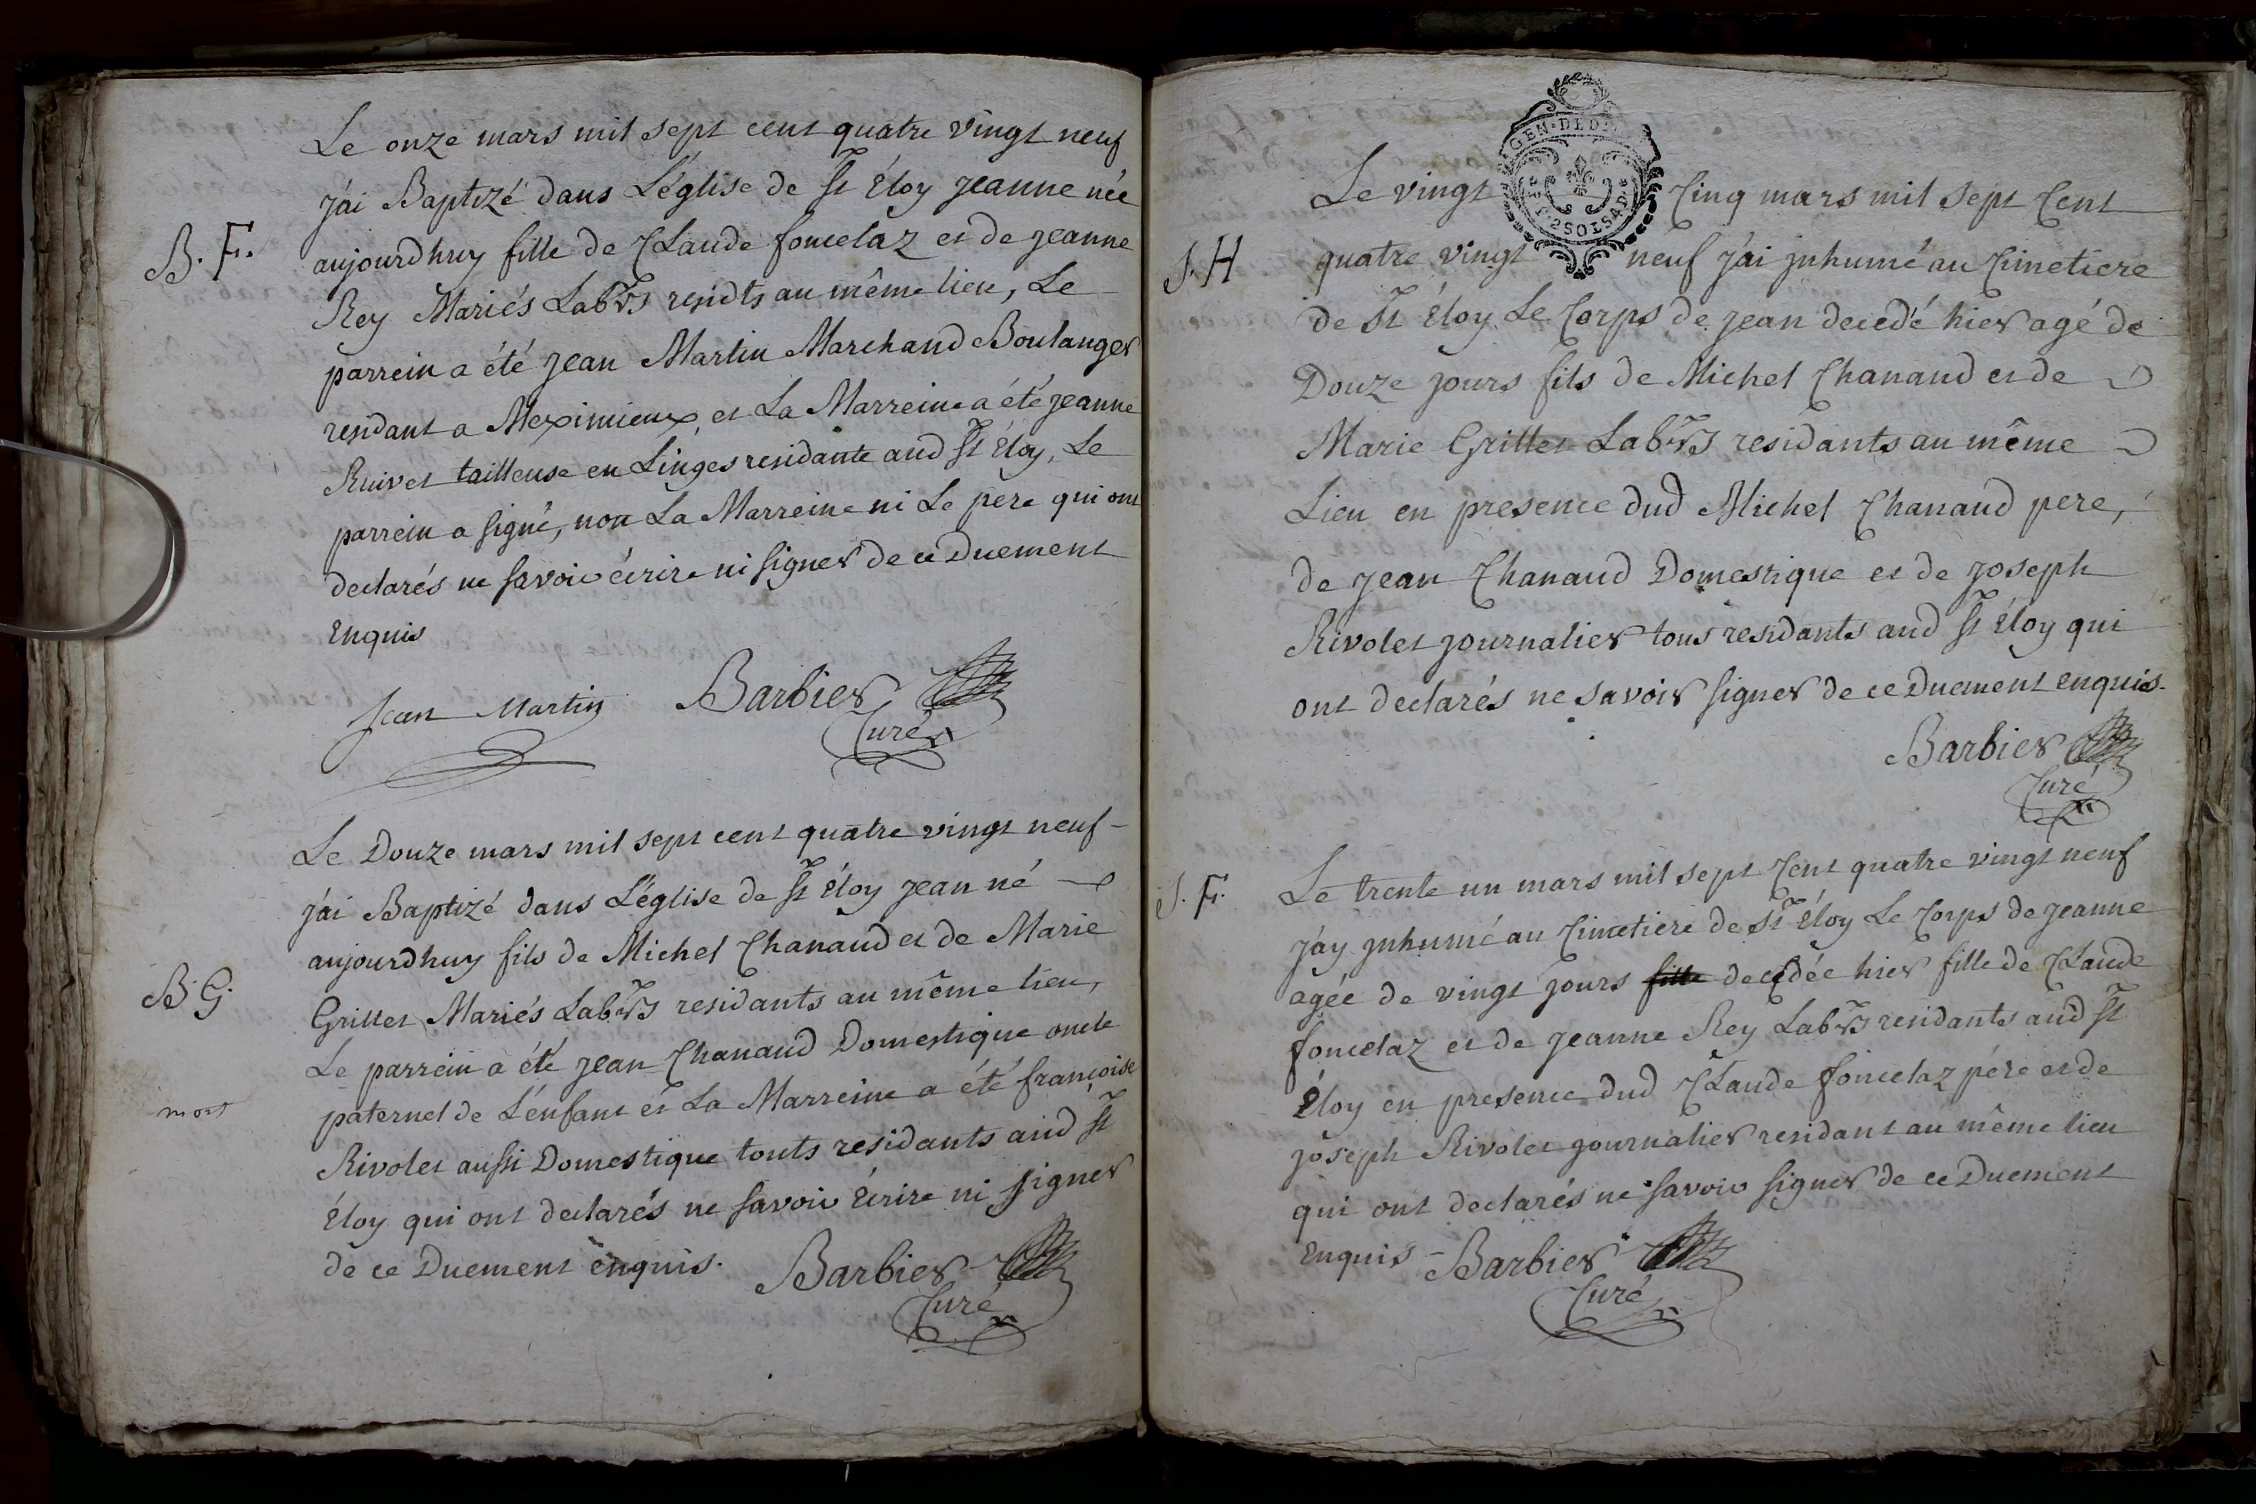 Le onze mars mil sept cent quatre vingt neuf
j'ai Baptizé dans L'église de St Éloy jeanne née
B. F.
aujourdhuy fille de Claude foncelaz et de jeanne
Rey Mariés Labrs residts au même lieu, Le
parrein a été jean Martin Marchand Boulanger
residant a Meximieux et La Marreine a été jeanne
Ruivet tailleuse en Linges residante aud St Éloy, Le
parrein a signé, non La Marreine ni Le père qui ont
declarés ne savoir écrire ni signer de ce Duement
Enquis
Jean Martin Barbier
Curé
Le Douze mars mil sept cent quatre vingt neuf
j'ai Baptizé dans L'église de St Éloy jean né
aujourdhuy fils de Michel Chanaud et de Marie
B. G.
Grillet Mariés Labrs residants au même lieu,
Le parrein a été jean Chanaud Domestique oncle
mort
paternel de L'enfant et La Marreine a été françoise
Rivolet aussi Domestique touts residants aud St
Éloy qui ont declarés ne savoir Écrire ni signer
de ce Duement enquis.
Barbier
Curé
GEN. DE D
2 SOLS
Le vingt Cinq mars mil sept Cent
S. H
quatre vingt neuf j'ai jnhumé au Cimetiere
de St Éloy Le Corps de jean decedé hier agé de
Douze jours fils de Michel Chanaud et de
Marie Grillet Labrs residants au même
Lieu en presence dud Michel Chanaud pere,
de jean Chanaud Domestique et de joseph
Rivolet journalier tous residants aud St Éloy qui
ont declarés ne savoir signer de ce Duement enquis.
Barbier
Curé
S. F.
Le trente un mars mil sept Cent quatre vingt neuf
j'ay jnhumé au Cimetiere de St Éloy Le Corps de jeanne
agée de vingt jours fille decedée hier fille de Claude
foncelaz et de jeanne Rey Labrs residants aud St
Éloy en presence dud Claude foncelaz pére et de
joseph Rivolet journalier residant au même lieu
qui ont declarés ne savoir signer de ce Duement
Enquis - Barbier
Curé